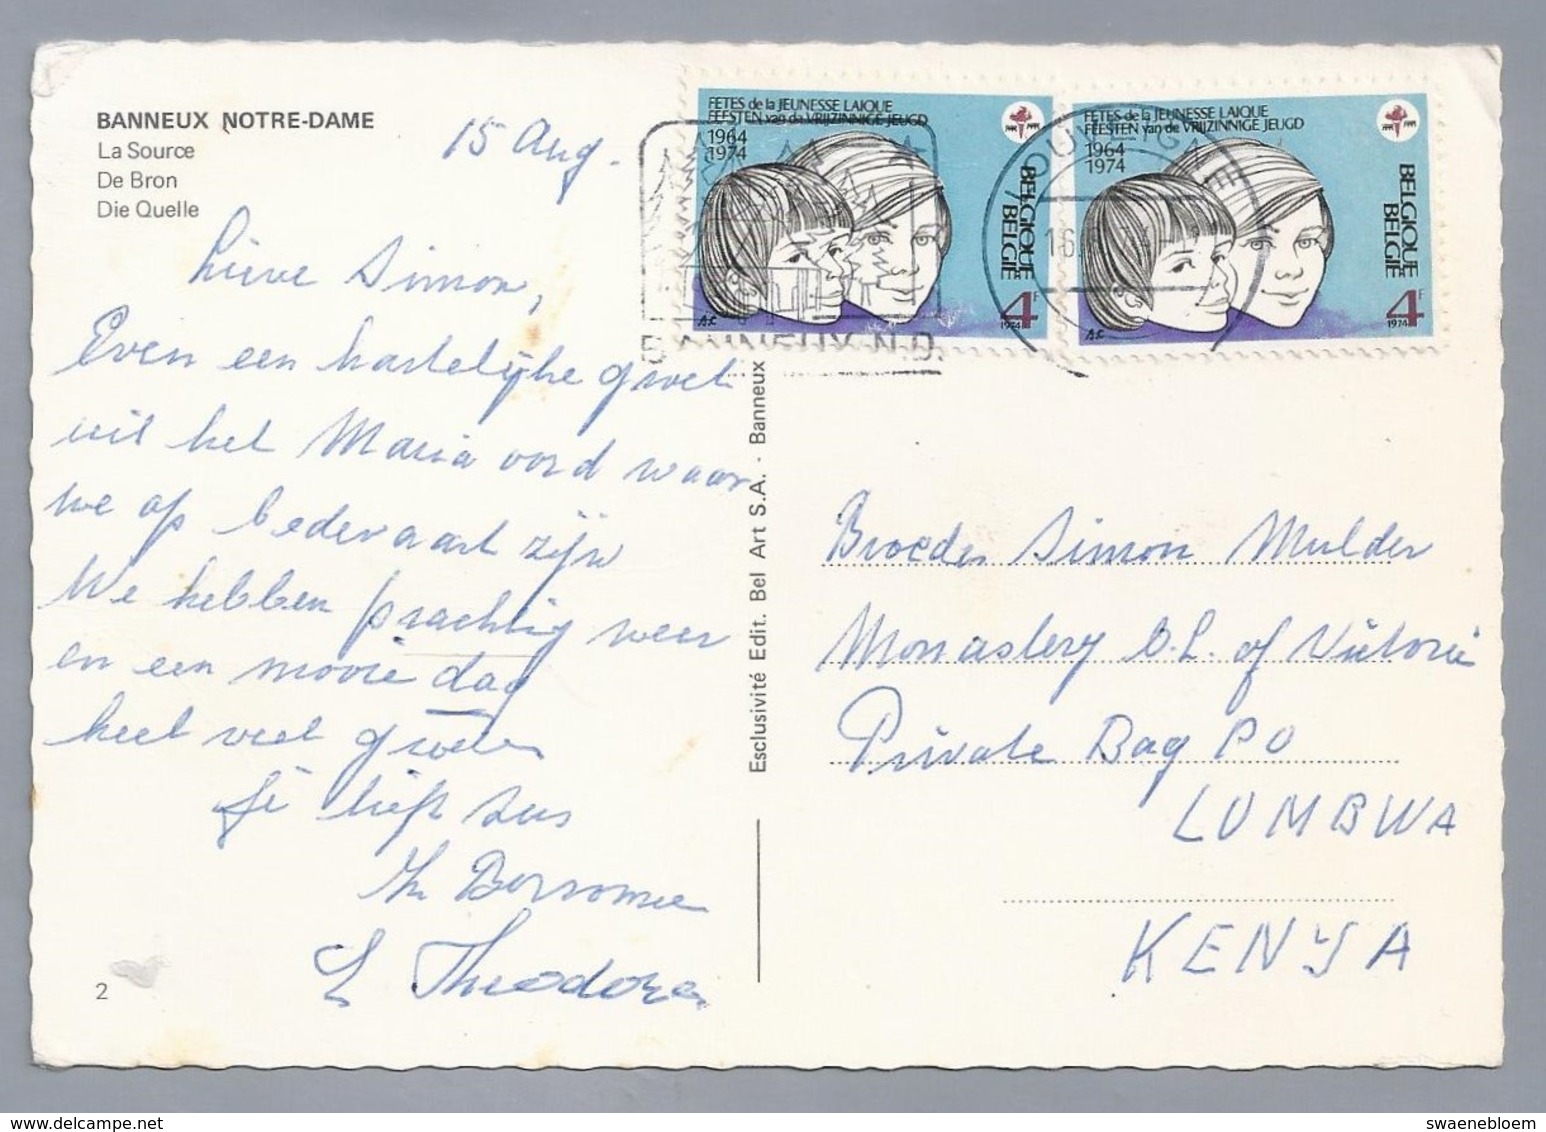 BANNEUX NOTRE-DAME
La Source
De Bron
Die Quelle
15 Aug.
Lieve Simon,
Even een hartelijke groet
uit het Maria oord waar
we op bedevaart zijn
We hebben prachtig weer
en een mooie dag
heel veel groeten
Je liefh zus
Borromee
Theodora
2
Esclusivité Edit. Bel Art S.A. - Banneux
FETES de la JEUNESSE LAIQUE
FEESTEN van de VRIJZINNIGE JEUGD
1964
1974
BELGIQUE
BELGIË
4F
1974
FETES de la JEUNESSE LAIQUE
FEESTEN van de VRIJZINNIGE JEUGD
1964
1974
BELGIQUE
BELGIË
4F
1974
BANNEUX N.D.
LOUVEIGNE
16
Broeder Simon Mulder
Monastery O.L. of Victorie
Private Bag PO
LUMBWA
KENYA
www.delcampe.net
swaenebloem